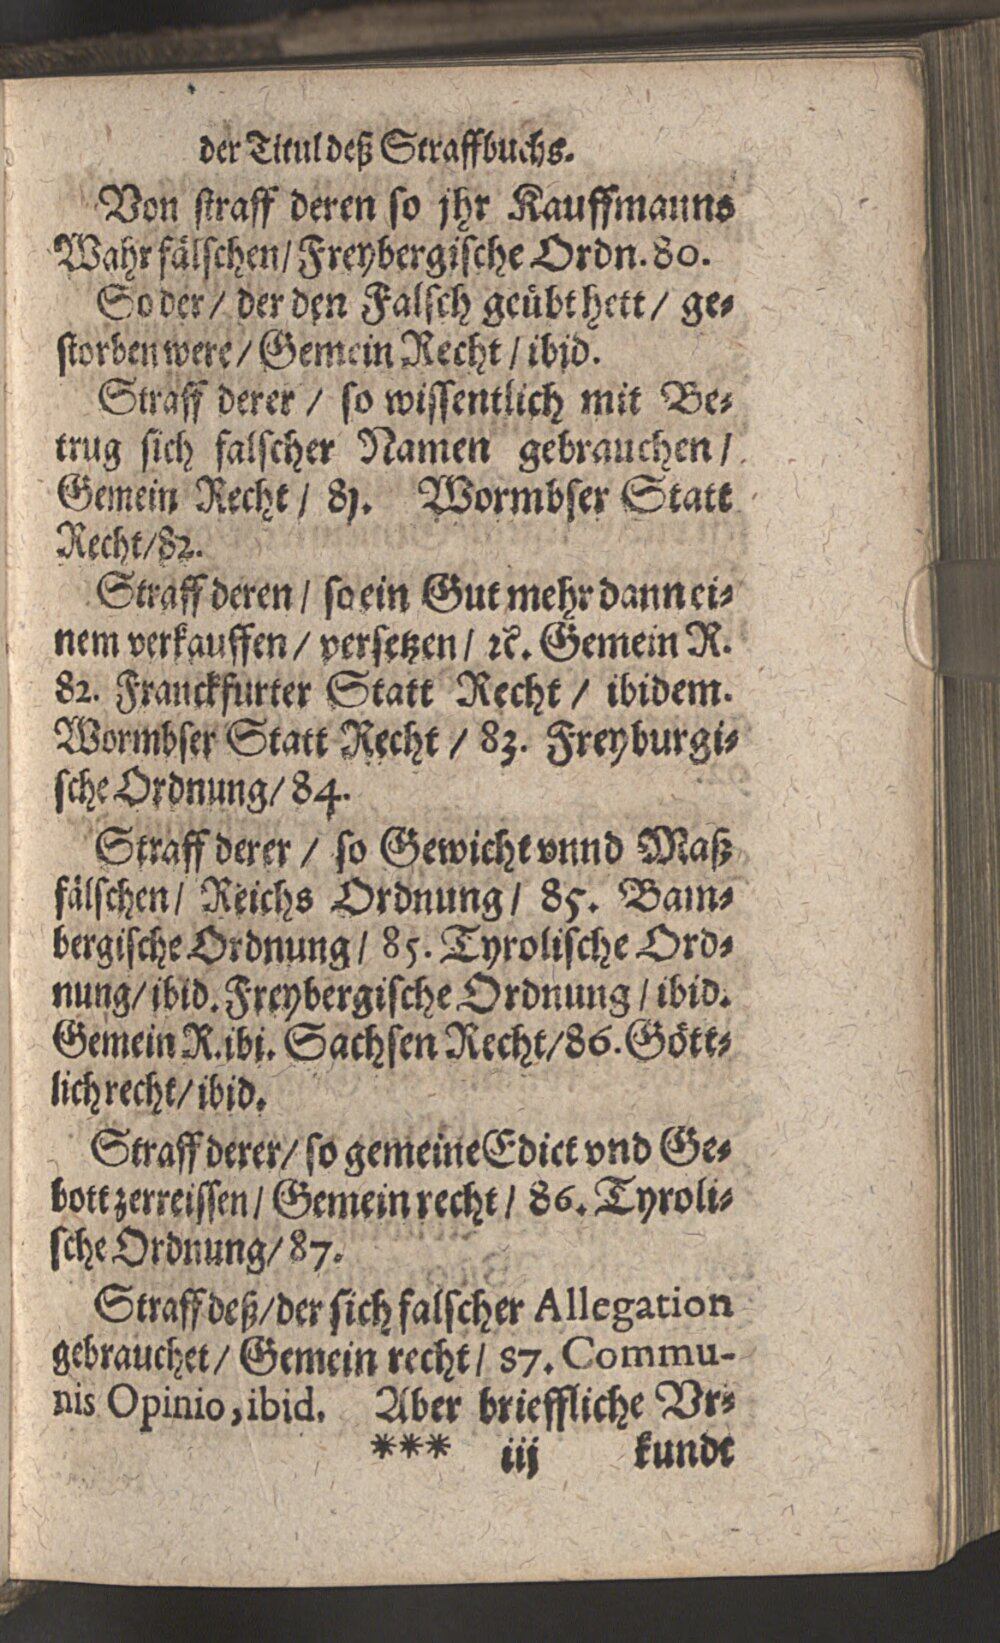 der Titul deß Straffbuchs.
Von straff deren so jhr Kauffmanns
Wahr fälschen/ Freybergische Ordn. 80.
So der/ der den Falsch geübt hett/ ge-
storben were/ Gemein Recht/ ibid.
Straff derer/ so wissentlich mit Be-
trug sich falscher Namen gebrauchen/
Gemein Recht/ 81. Wormbser Statt
Recht/82.
Straff deren/ so ein Gut mehr dann ei-
nem verkauffen/ versetzen/ ꝛc. Gemein R.
82. Franckfurter Statt Recht/ ibidem.
Wormbser Statt Recht/ 83. Freyburgi-
sche Ordnung/ 84.
Straff derer/ so Gewicht vnnd Maß
fälschen/ Reichs Ordnung/ 85. Bam-
bergische Ordnung/ 85. Tyrolische Ord-
nung/ ibid. Freybergische Ordnung/ ibid.
Gemein R. ibi. Sachsen Recht/86. Gött-
lich recht/ ibid.
Straff derer/ so gemeine Edict vnd Ge-
bott zerreissen/ Gemein recht/ 86. Tyroli-
sche Ordnung/ 87.
Straff deß/ der sich falscher Allegation
gebrauchet/ Gemein recht/ 87. Commu-
nis Opinio, ibid. Aber brieffliche Vr-
*** iij kunde